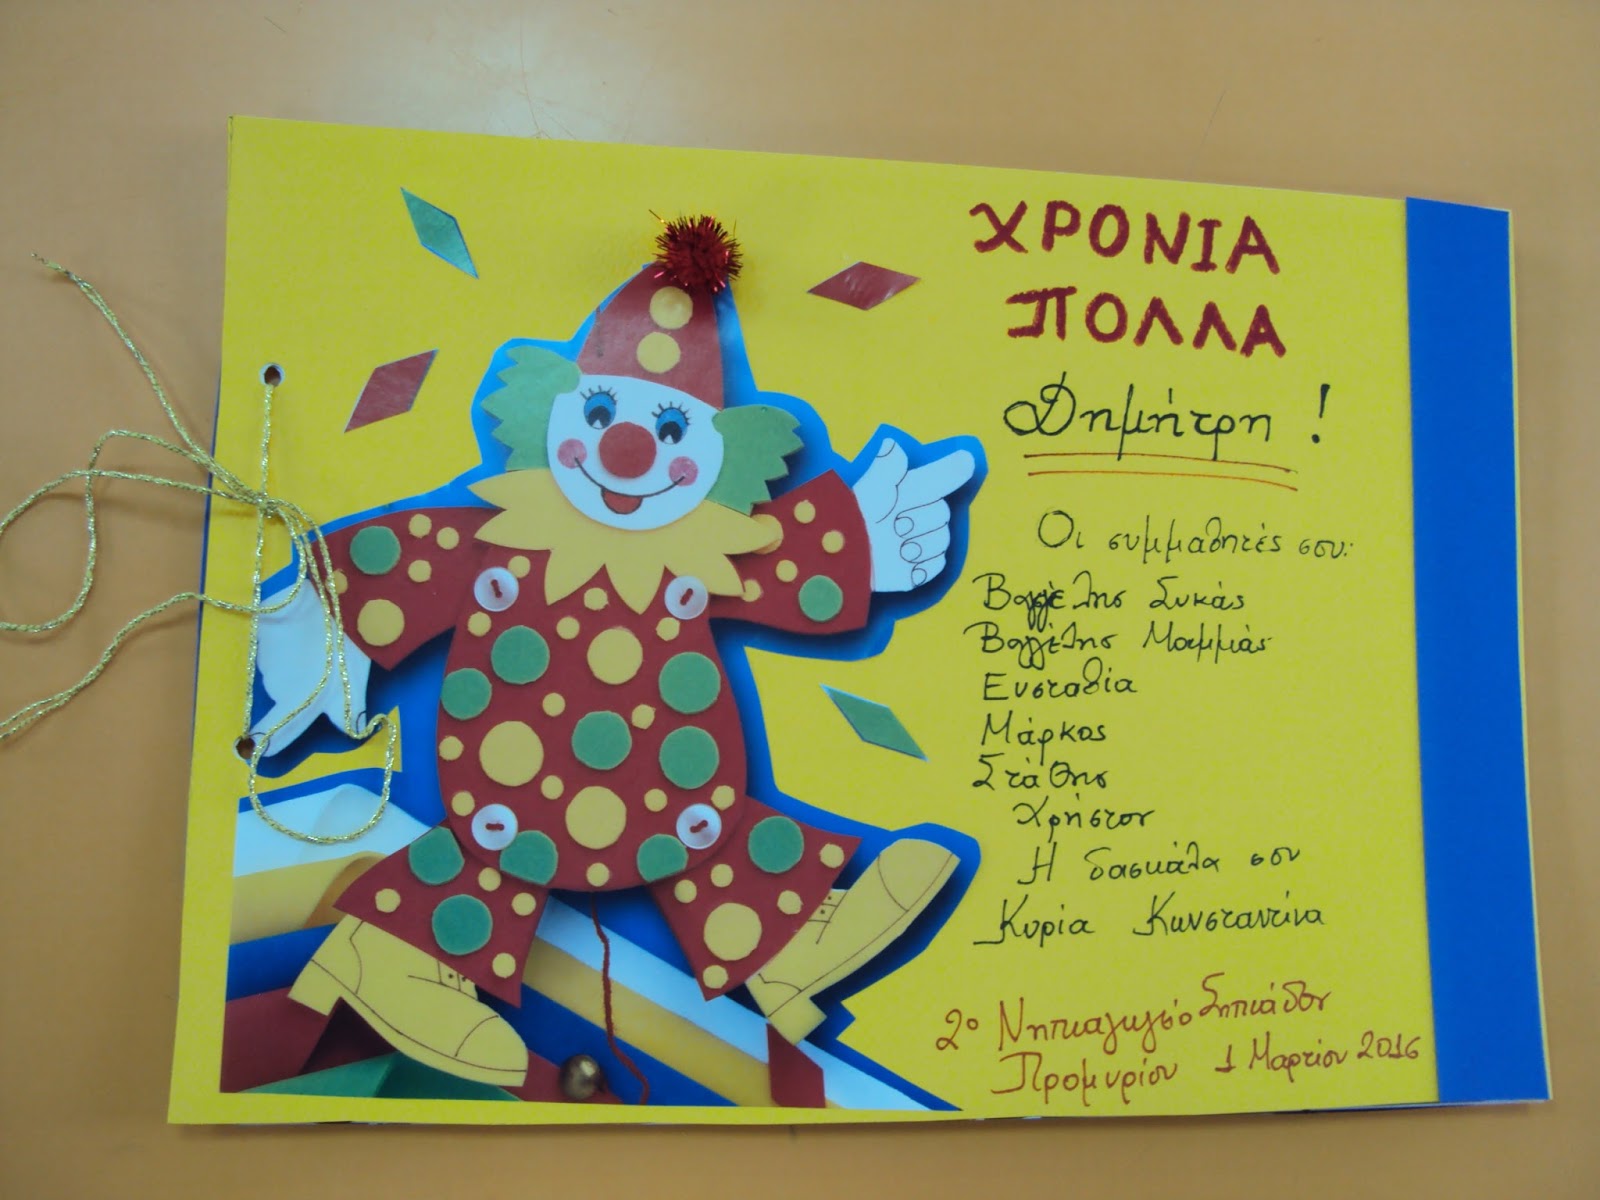 ΧΡΟΝΙΑ
ΠΟΛΛΑ
Δημήτρη !
Οι συμμαθητές σου:
Βαγγέλης Συκάς
Βαγγέλης Μαμμάς
Ευσταθία
Μάρκος
Στάθης
Χρήστος
Η δασκάλα σου
Κυρία Κωνσταντίνα
2ο Νηπιαγωγείο Σηπιάδος
Προμυρίου 1 Μαρτίου 2016